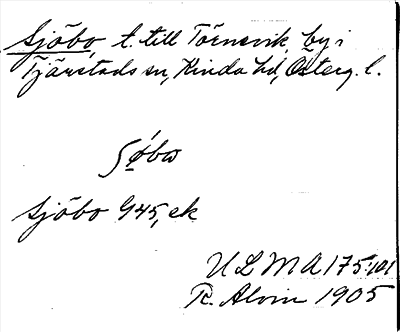 Sjöbo, t. till Törnevik, by i
Tjärstads sn, Kinda hd, Österg. l.
Sjöbo G45, ek
ULMA 175:101
R. Alvin 1905